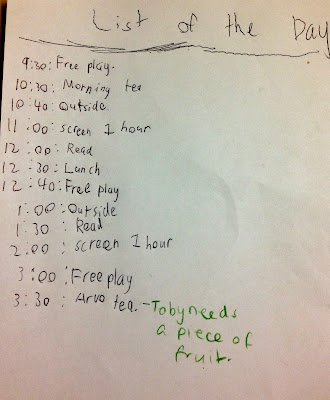 List of the Day
9:30: Free play.
10:30: Morning tea
10:40: Outside.
11:00: screen 1 hour
12:00: Read
12:30: Lunch
12:40: Free play
1:00: Outside
1:30: Read
2:00: screen 1 hour
3:00: Free play
3:30: Arvo tea. - Toby needs
a piece of
fruit.